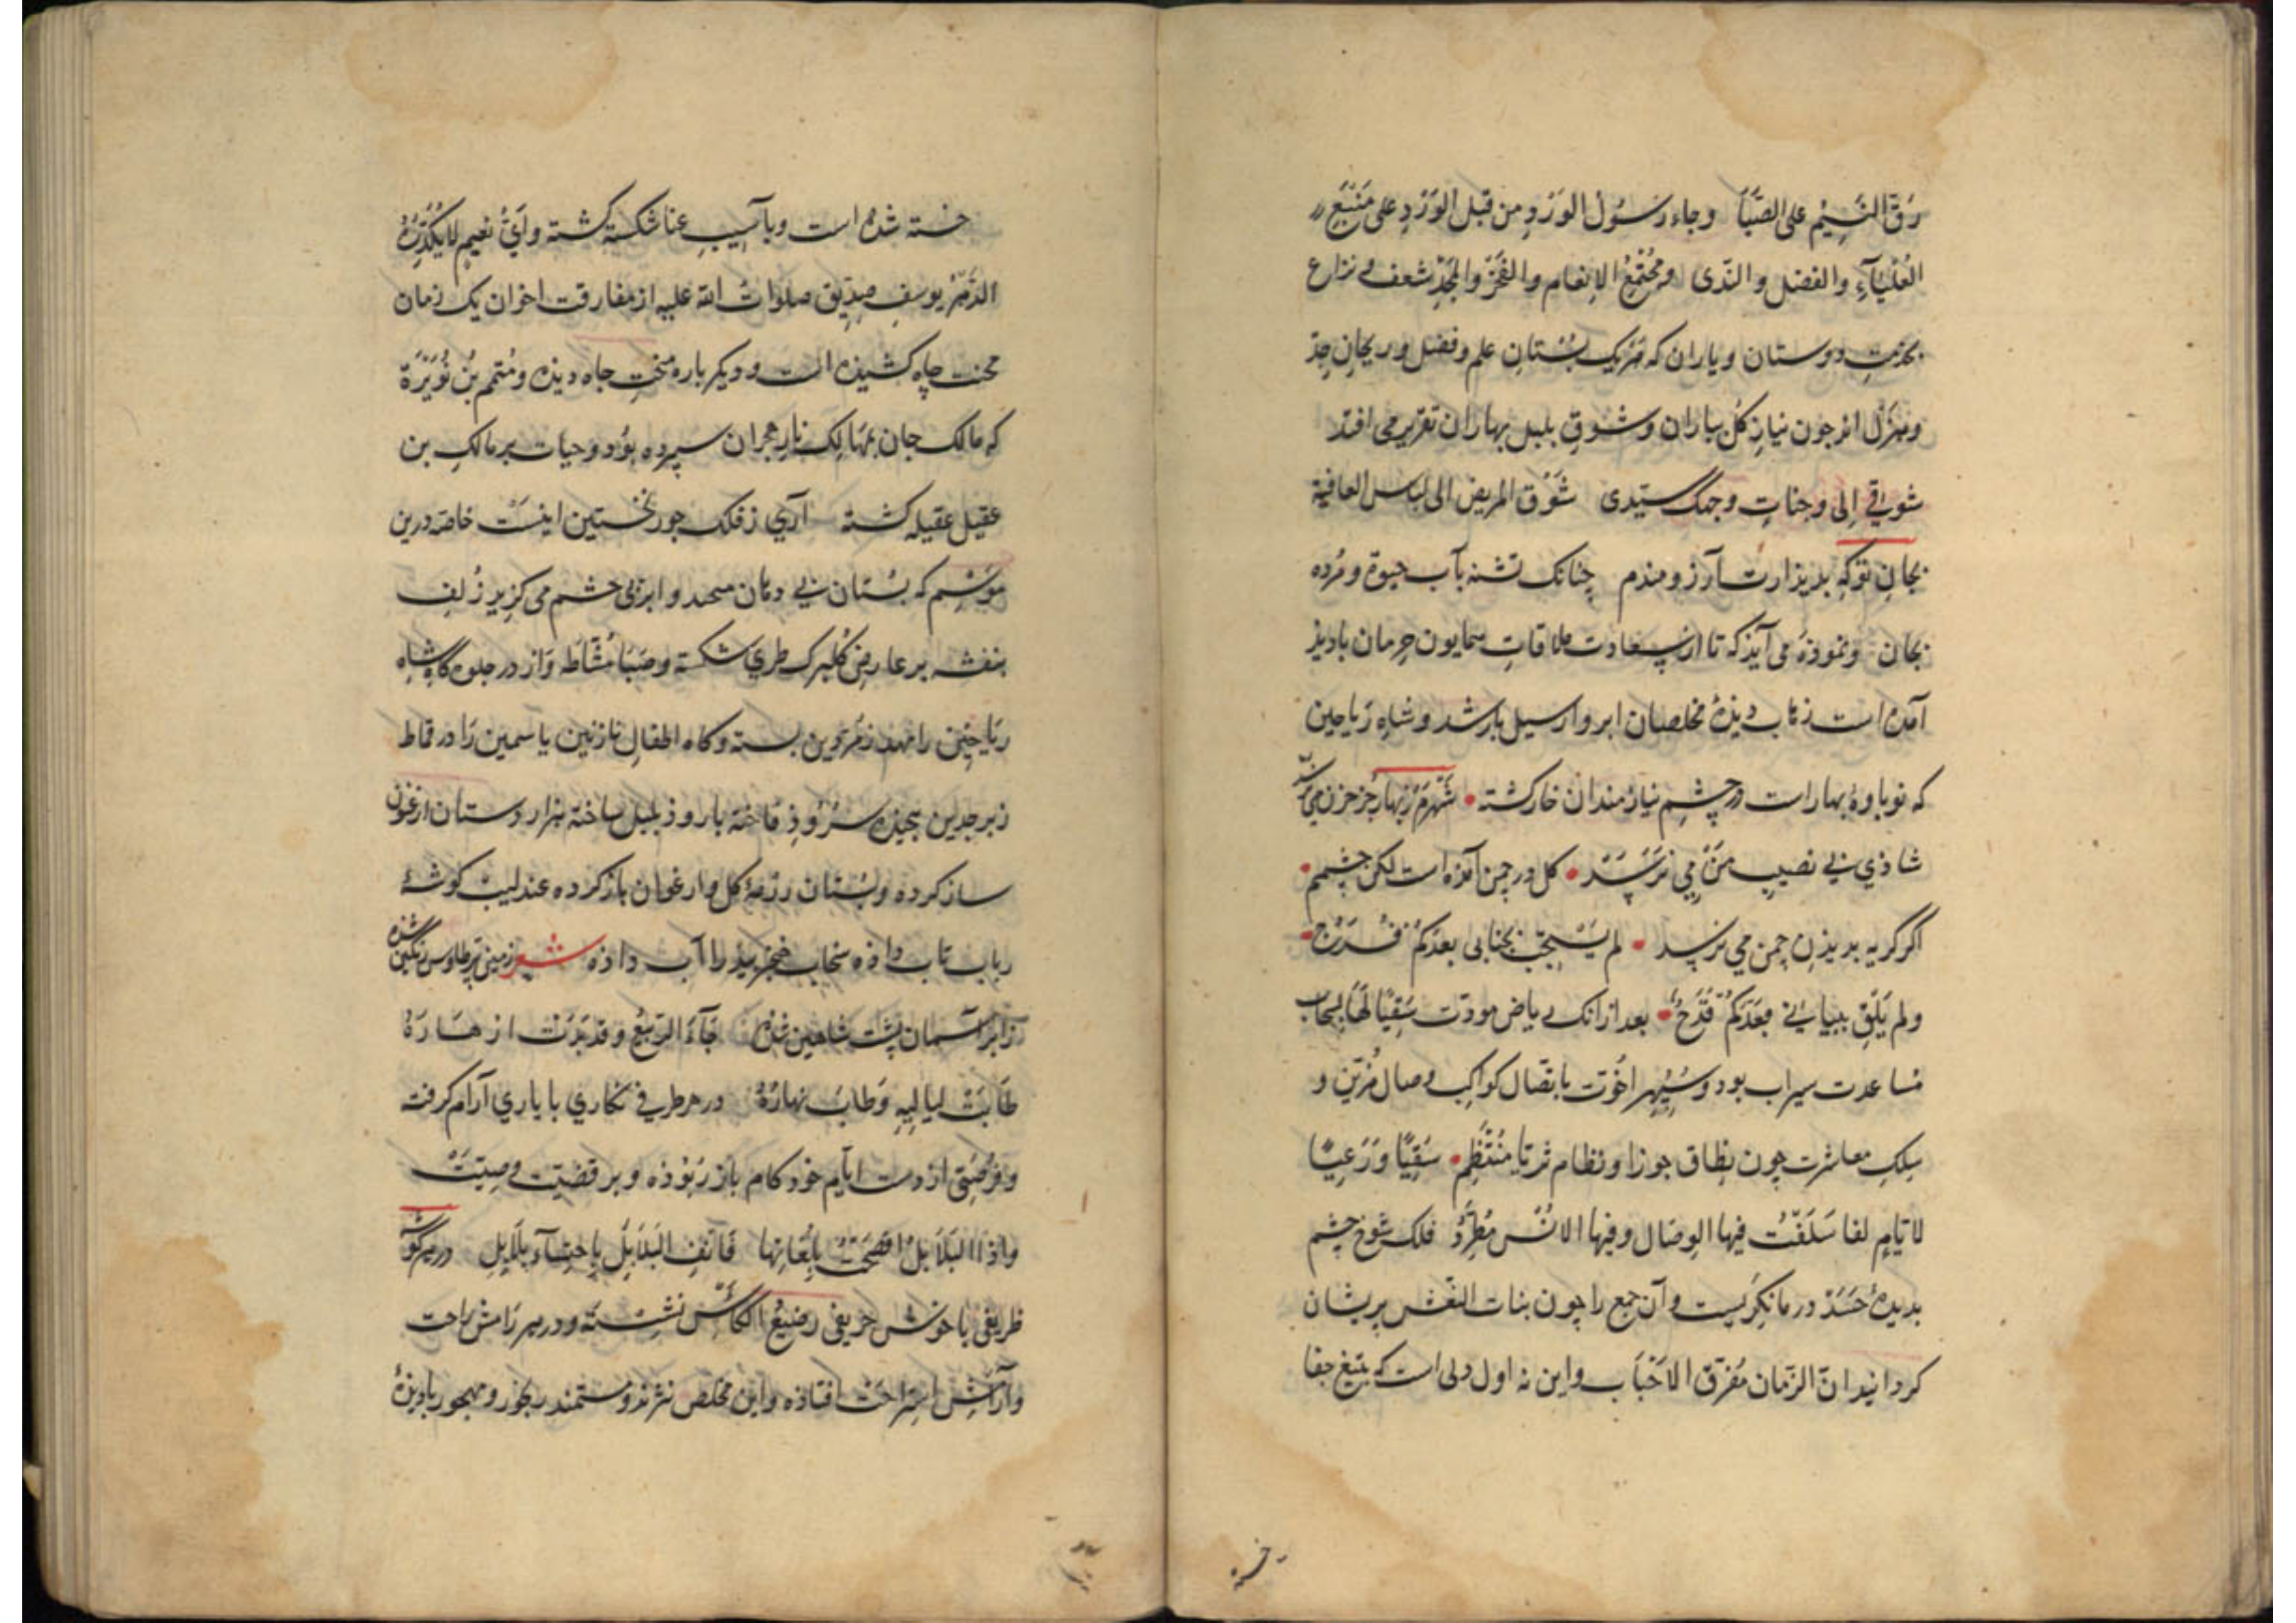 رَقَّ النَّسِيْمُ علی الصَّبَا وجاء رسُول الوَرْدِ من قبل الوَرْدِ علی مَنْبَعِ
العُلْيَآءِ والفضل والنّدی ومُجْتَمَعِ الانعام والفَخْرِ والمجْدِ شعف و نزاع
بخدمت دوستان و ياران که هريک بُستانِ علم و فضل و ريحانِ جدّ
وهَزْل اند چون نيازِ کُل بباران و شوقِ بلبل بهاران تقرير می افتد
شوقی اِلی وجناتِ وجهک سيّدی شَوْق المريض الی لباس العافية
بجانِ تو که بديذارت آرزومندم چنانک تشنه بآب حيوة و مُرده
بجان ونموذه می آيذ که تا از سعادت ملاقاتِ همايون حرمان باديذ
آمده است ديذهٔ مخلصان ابروار سيل بار شد و شاهِ رَياحين
که نوباوهٔ بهار است در چشم نيازمندان خار گشته شهرم ز بهار جز حزن می نرسد
شاذی نی نصيب من می نرسَد کل در چمن آمذه است لکن چشمم
اکر کريه بديذن چمن می نرسد لم يَسْتَجِبْ بجنابی بعدکم فَرَح
ولم يَلِقْ ببنانی بعدَکم قَدَح بعد ازانک رياض مودّت سَقيًا لَهَا بسحاب
مساعدت سيراب بود و سپهر اخوّت باتصال کواکب وصال مُزيّن و
سلکِ معاشرت چون نِطاق جوزا و نظام ثريّا مُنتَظِم سَقيًا ورَعيًا
لايّامٍ لنا سَلَفَتْ فيها الوِصال وفيها الانْس مُطّرِدُ فلک شوخ چشم
بديدهٔ حَسَد در ما نکريست و آن جمع را چون بنات النّعْش پريشان
کردانيد انّ الزّمان مُفرّق الاحْبَاب و اين نه اول دلی است که بتيغ جفا
خسته شده است و بآسيب عنا شکسته کشته وايُّ نعيمٍ لا يُكَدِّرُهُ
الدّهرُ يوسف صِدّيق صلواتُ الله عليه از مفارقت اخوان يک زمان
محنت چاه کشيذه است و ديکر باره تختِ جاه ديذه و مُتَمم بنُ نُوَيرَة
که مالک جان بمهالک نارِ هجران سپرده بوُد و حيات بر مالکِ بن
عقيل عقيله کشته آری ز فلک جور نخستين اينست خاصّه درين
موسِم که بُستان بی دهان می خندد و ابر بی چشم می کريد زُلفِ
بنفشه بر عارضِ کلبرک طری شکسته و صَبَا مشّاطه وَار در جلوه کاهِ شاهِ
رياحِين را مهد زمرّدين بسته و کاه اطفالِ نازنين ياسمين رَا در قماط
زبرجدين پيچيذه سرُوذِ فاخته با رود بلبل ساخته هزار دستان ارغنون
ساز کرده و بُستان رزمهٔ کل و ارغوان باز کرده عندليب کوشهٔ
رباب تاب داذه سحاب خنجر بيذ را آب داذه شعر زمين پر طاوس رنکين شذه
ز ابر آسمان پشت شاهين شذه جَآءَ الرّبيعُ وقد بَدَتْ ازهَارَهُ
طَابَتْ لياليهِ وَطابَ نهارُهُ در هر طرفی نکاری با ياری آرام کرفته
وفرُصتی از دست ايّام خود کام باز ربُوذه و بر قضيّت وصيّت
واذا البَلَابلُ افصَحَتْ بِلُغاتِها فَانْفِ البَلَابِلَ بِاحتِسَآءِ بلَابِلِ در هر کوشه
ظريفی با خوش حريفی رضيعُ الکأسِ نشسته و در هر رَامش راحت
و آرَامش استراحت افتاذه و اين مخلص نژند و مستمند رنجور و مهجور باديذهٔ
خسته